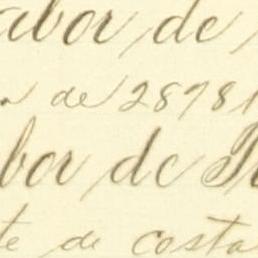 abor, de
de 28781
bor, de
te de costa